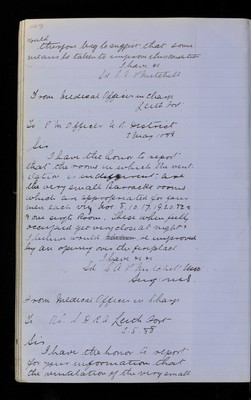 would
therefore beg to suggest that some
means be taken to improve
I have &c
Sd S. A. Mitchell
From Medical Officer in charge
Leith Fort
To P. M. Officer N. B. District
May 1888
Sir
I have the honor to report
that the rooms in which the vent-
ilation is indifferent are
the very small Barrack rooms
which are appropriated for four
men each viz Nos 8. 10. 17. 19. 20. 22 &
& one Sergts Room. These when fully
occupied get very close at night
I believe would be improved
by an opening over the fireplace
I have &c &c
Sd S A Mitchell
Surg
From Medical Officer in Charge
To Leith Fort
5. 88
Sir
I have the honor to report
for your information that
the ventilation of the very small